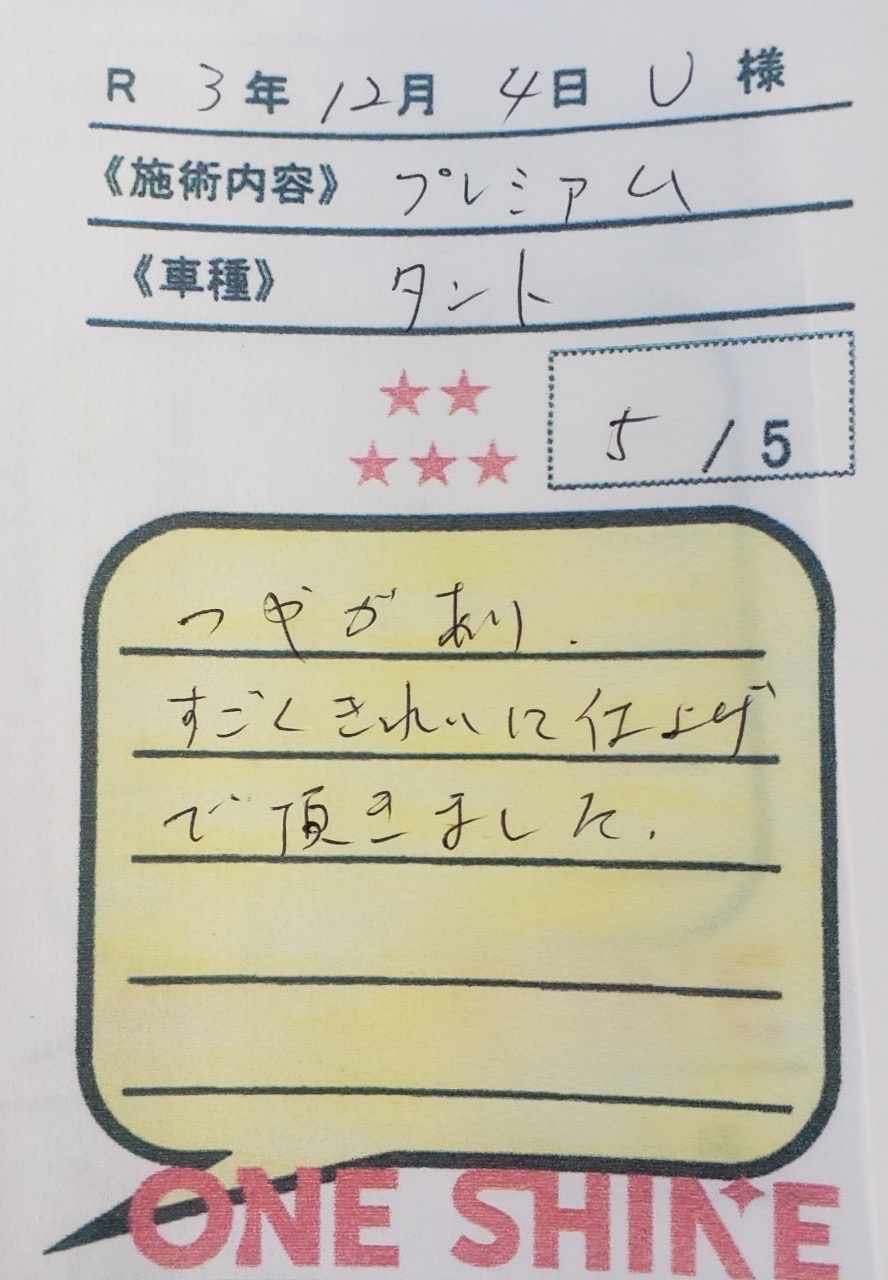 R 3年 12月 4日 U 様
《施術内容》 プレミアム
《車種》 タント
5 / 5
つやがあり.
すごくきれいに仕上げ
で頂きました.
ONE SHINE